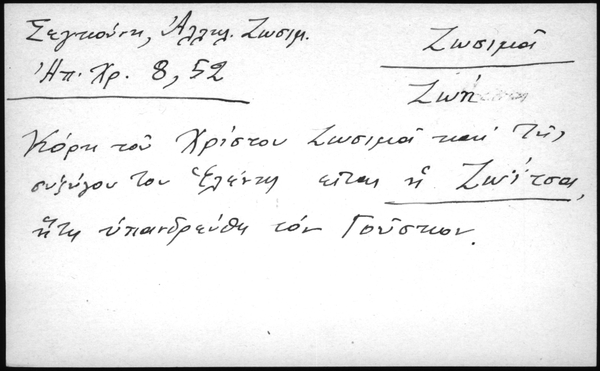 Σεγκούνη, Ἀλληλ. Ζωσιμ.
Ἠπ. Χρ. 8, 52
Ζωσιμᾶ
Ζωή
Κόρη τοῦ Χρίστου Ζωσιμᾶ καί τῆς
συζύγου του Ἑλένης εἶναι ἡ Ζωΐτσα,
ἥτις ὑπανδρεύθη τόν Γοῦστον.